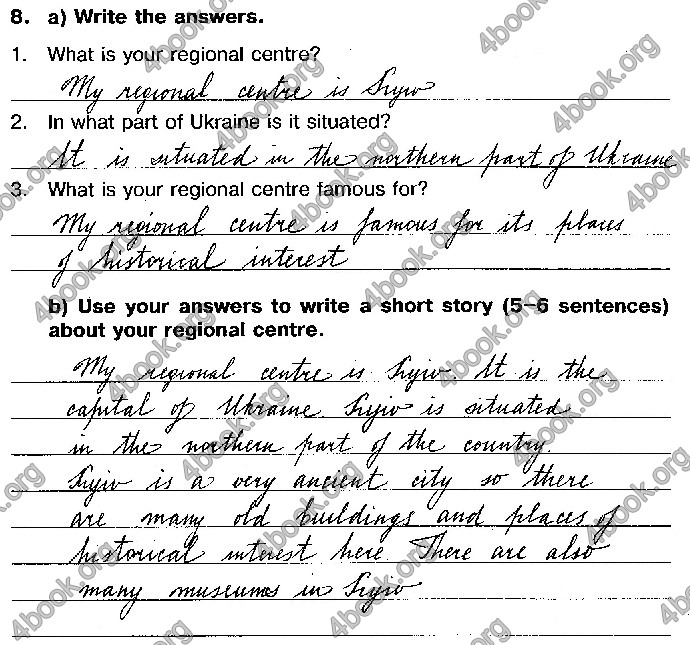 8. a) Write the answers.
1. What is your regional centre?
My regional centre is Kyiv
2. In what part of Ukraine is it situated?
It is situated in the northern part of Ukraine
3. What is your regional centre famous for?
My regional centre is famous for its places
of historical interest
b) Use your answers to write a short story (5–6 sentences)
about your regional centre.
My regional centre is Kyiv. It is the
capital of Ukraine. Kyiv is situated
in the northern part of the country.
Kyiv is a very ancient city so there
are many old buildings and places of
historical interest here. There are also
many museums in Kyiv
4book.org